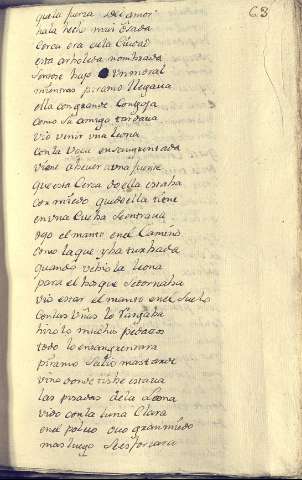 68
que la fuerza del amor
hala hecho muy osada
Cerca era de la Ciudad
esta arboleda nombrada
sentose bajo Un moral
mientras piramo llegaua
ella con grande Congoja
como su amigo tardaua
vio venir una leona
con la boca ensangrentada
viene a beuer a una fuente
que esta Cerca do ella estaba
con miedo que della tiene
en vna Cueba se entraua
dejo el manto en el Camino
como la que yba turbada
quando vebio la leona
para el bosque se tornaba
vio estar el manto en el suelo
con las Uñas lo rasgaba
hizo lo muchos pedaços
todo lo ensangrentara
piramo salio mas tarde
vino donde tisbe estaua
las pisadas de la Leona
vido con la luna Clara
en el poluo ouo gran miedo
mas luego se esforçara